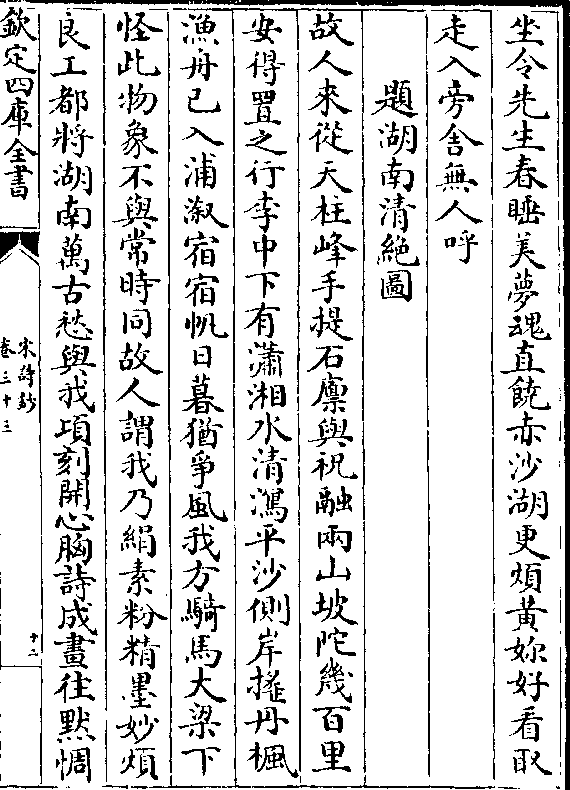 坐令先生春睡美夢魂直饒赤沙湖更煩黃妳好看取
走入旁舍無人呼
題湖南清絶圖
故人來從天柱峰手提石廪與祝融兩山坡陀幾百里
安得置之行李中下有瀟湘水清瀉平沙側岸搖丹楓
漁舟已入浦溆宿宿帆日暮猶爭風我方騎馬大梁下
怪此物象不與常時同故人謂我乃絹素粉精墨妙煩
良工都將湖南萬古愁與我頃刻開心胸詩成畫往黙惆
欽定四庫全書
宋詩鈔
卷三十三
十二